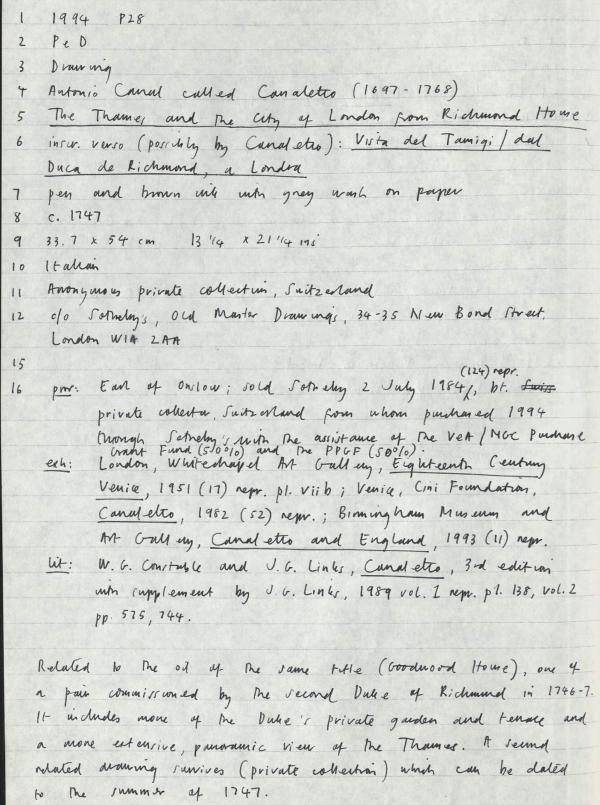 1 1994 P28
2 P e D
3 Drawing
4 Antonio Canal called Canaletto (1697-1768)
5 The Thames and the City of London from Richmond House
6 inscr. verso (possibly by Canaletto): Vista del Tamigi / dal
Duca de Richmond, a Londra
7 pen and brown ink with grey wash on paper
8 c. 1747
9 33.7 x 54 cm 13 1/4 x 21 1/4 ins
10 Italian
11 Anonymous private collection, Switzerland
12 c/o Sotheby's, Old Master Drawings, 34-35 New Bond Street,
London W1A 2AA
15
(124) repr.
16 prov: Earl of Onslow; sold Sotheby 2 July 1984, bt. Swiss
private collector, Switzerland from whom purchased 1994
through Sotheby's with the assistance of the V&A/MGC Purchase
Grant Fund (50%) and the PPGF (50%).
exh: London, Whitechapel Art Gallery, Eighteenth Century
Venice, 1951 (17) repr. pl. viib; Venice, Cini Foundation,
Canaletto, 1982 (52) repr.; Birmingham Museum and
Art Gallery, Canaletto and England, 1993 (11) repr.
lit: W.G. Constable and J.G. Links, Canaletto, 3rd edition
with supplement by J.G. Links, 1989 vol. I repr. pl. 138, vol. 2
pp. 575, 744.
Related to the oil of the same title (Goodwood House), one of
a pair commissioned by the second Duke of Richmond in 1746-7.
It includes more of the Duke's private garden and terrace and
a more extensive, panoramic view of the Thames. A second
related drawing survives (private collection) which can be dated
to the summer of 1747.